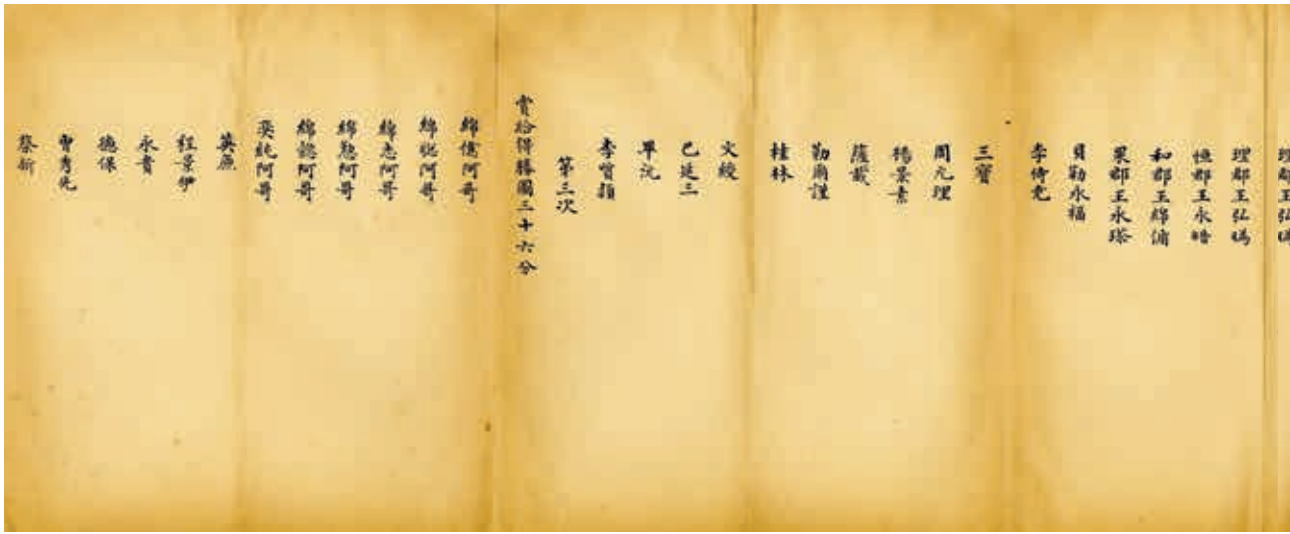 理郡王弘㬙
理郡王弘㬙
恒郡王永皓
和郡王綿倫
果郡王永瑹
貝勒永福
李侍堯
三寶
周元理
楊景素
薩載
勒爾謹
桂林
文綬
巴延三
畢沅
李質穎
第三次
賞給得勝圖三十六分
綿億阿哥
綿聰阿哥
綿志阿哥
綿懃阿哥
綿懿阿哥
奕純阿哥
英廉
程景伊
永貴
德保
曹秀先
蔡新